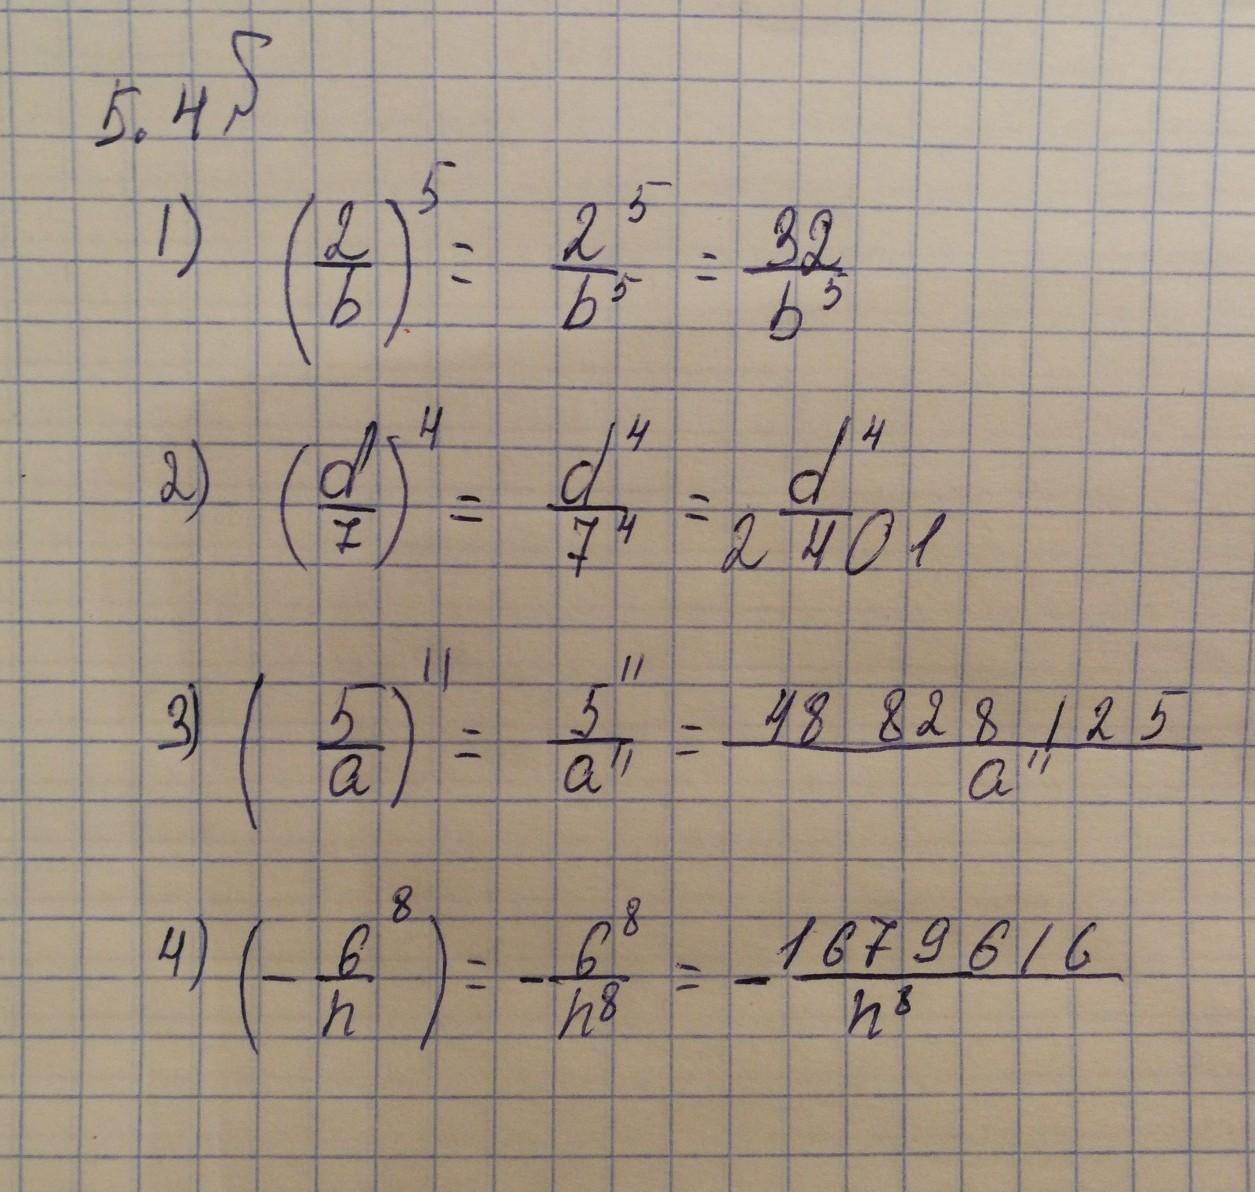 5.4 б
1) (2/b)^5 = 2^5/b^5 = 32/b^5
2) (d/7)^4 = d^4/7^4 = d^4/2401
3) (5/a)^11 = 5^11/a^11 = 48 828 125/a^11
4) (-6/n^8) = -6^8/n^8 = -1679616/n^8